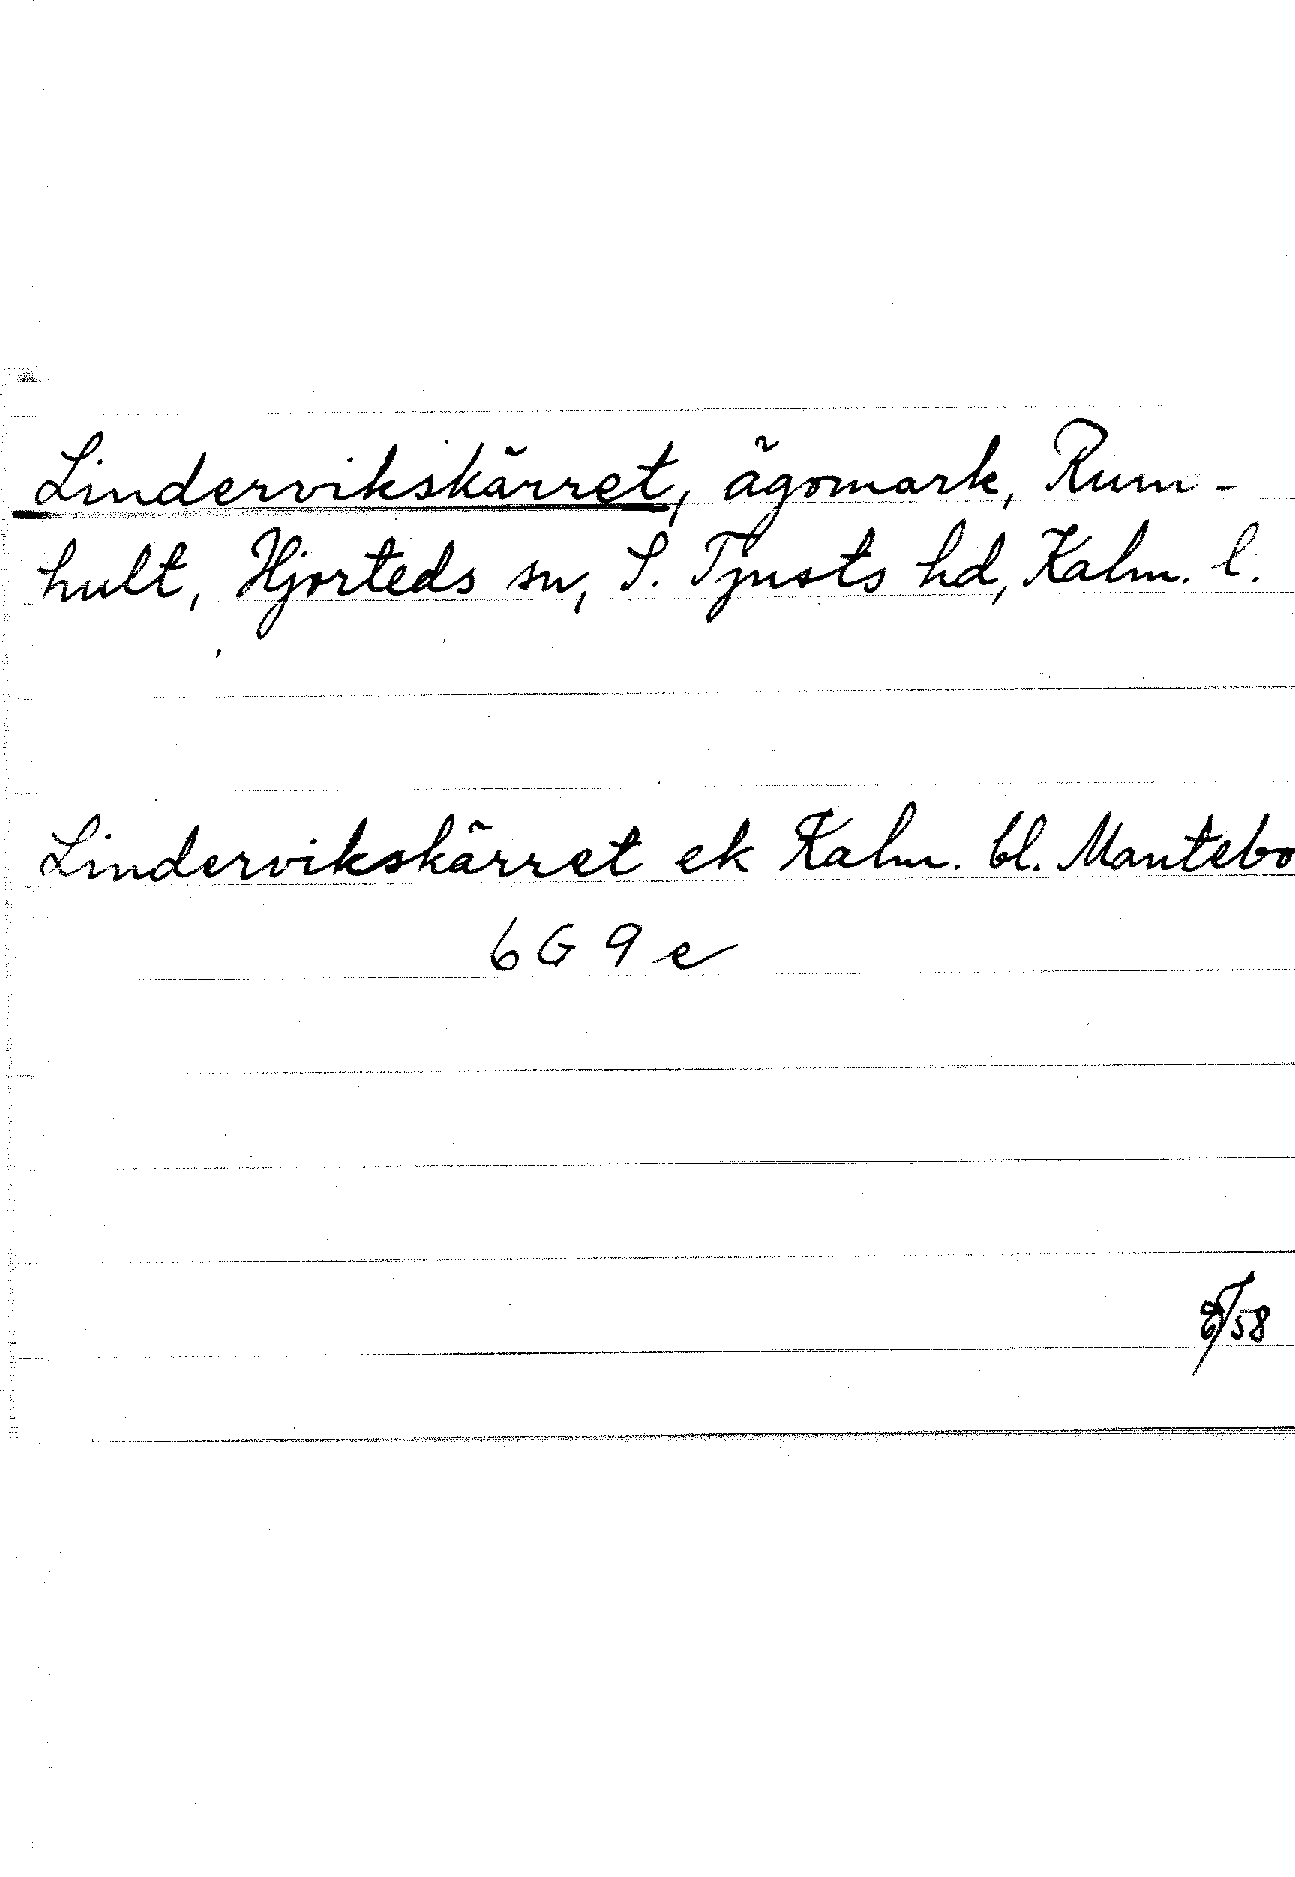 Lindervikskärret, ägomark, Rum-
hult, Hjorteds sn, S. Tjusts hd, Kalm. l.
Lindervikskärret ek Kalm. bl. Mantebo
6 G 9 e
/58